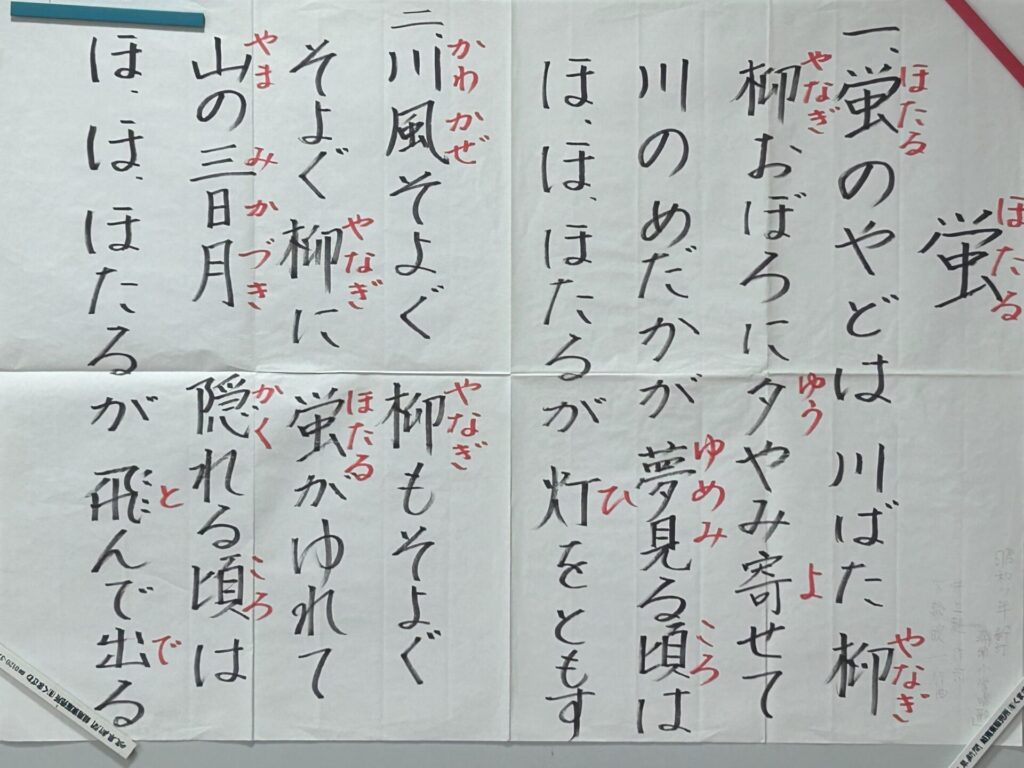 蛍
ほたる
一、蛍のやどは 川ばた 柳
ほたる やなぎ
柳おぼろに 夕やみ寄せて
やなぎ ゆう よ
川のめだかが 夢見る頃は
ゆめみ ころ
ほ、ほ、ほたるが 灯をともす
ひ
二、川風そよぐ 柳もそよぐ
かわかぜ やなぎ
そよぐ 柳に 蛍がゆれて
やなぎ ほたる
山の三日月 隠れる頃は
やま みかづき かく ころ
ほ、ほ、ほたるが 飛んで出る
と で